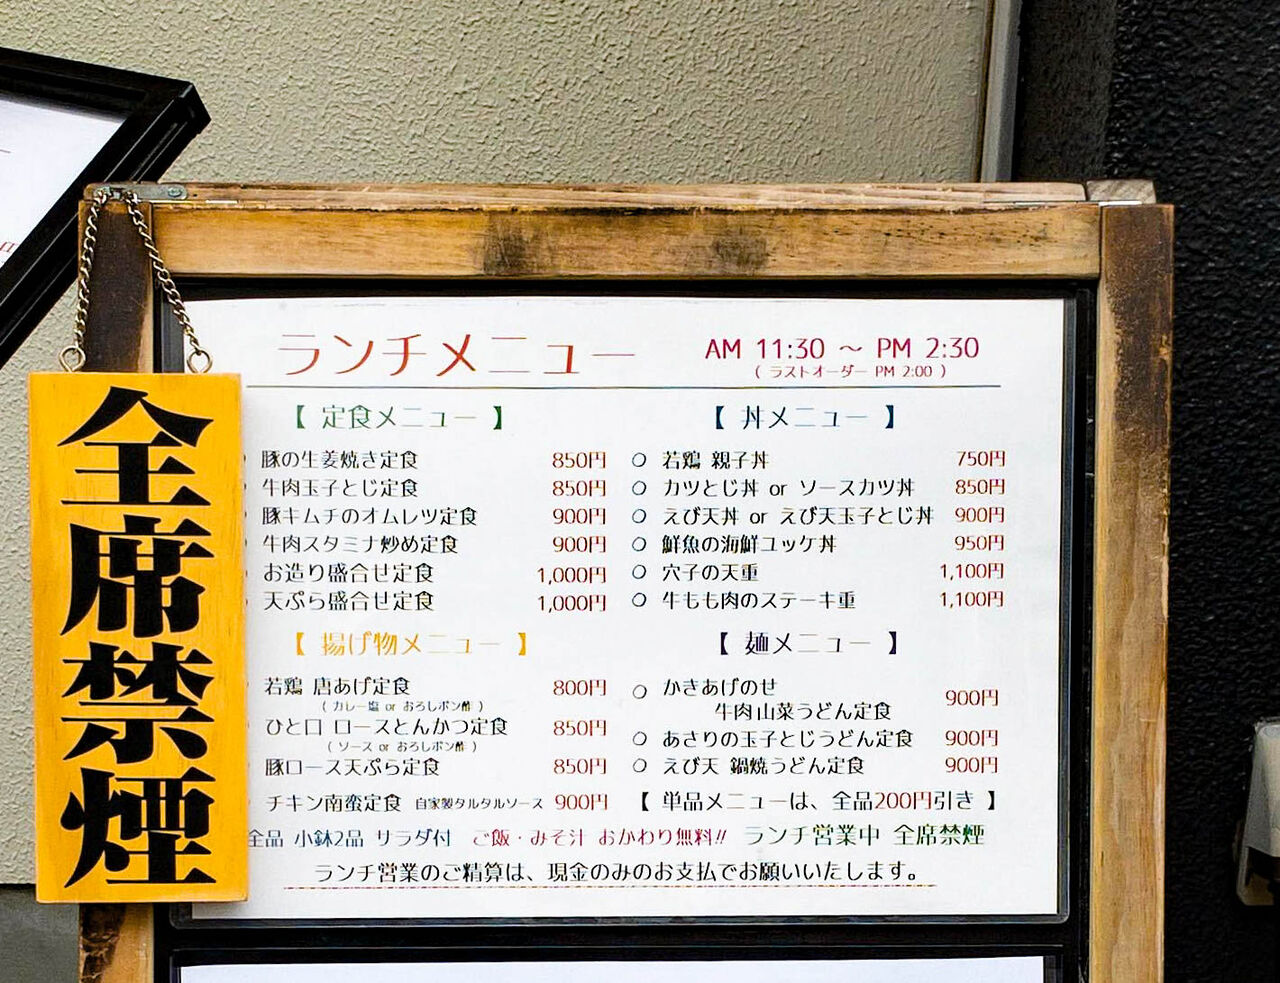 全席禁煙
ランチメニュー AM 11:30 ～ PM 2:30
( ラストオーダー PM 2:00 )
【 定食メニュー 】
豚の生姜焼き定食 850円
牛肉玉子とじ定食 850円
豚キムチのオムレツ定食 900円
牛肉スタミナ炒め定食 900円
お造り盛合せ定食 1,000円
天ぷら盛合せ定食 1,000円
【 揚げ物メニュー 】
若鶏 唐あげ定食 800円
( カレー塩 or おろしポン酢 )
ひと口 ロースとんかつ定食 850円
( ソース or おろしポン酢 )
豚ロース天ぷら定食 850円
チキン南蛮定食 自家製タルタルソース 900円
【 丼メニュー 】
○ 若鶏 親子丼 750円
○ カツとじ丼 or ソースカツ丼 850円
○ えび天丼 or えび天玉子とじ丼 900円
○ 鮮魚の海鮮ユッケ丼 950円
○ 穴子の天重 1,100円
○ 牛もも肉のステーキ重 1,100円
【 麺メニュー 】
○ かきあげのせ
牛肉山菜うどん定食 900円
○ あさりの玉子とじうどん定食 900円
○ えび天 鍋焼うどん定食 900円
【 単品メニューは、全品200円引き 】
全品 小鉢2品 サラダ付 ご飯・みそ汁 おかわり無料!! ランチ営業中 全席禁煙
ランチ営業のご精算は、現金のみのお支払でお願いいたします。